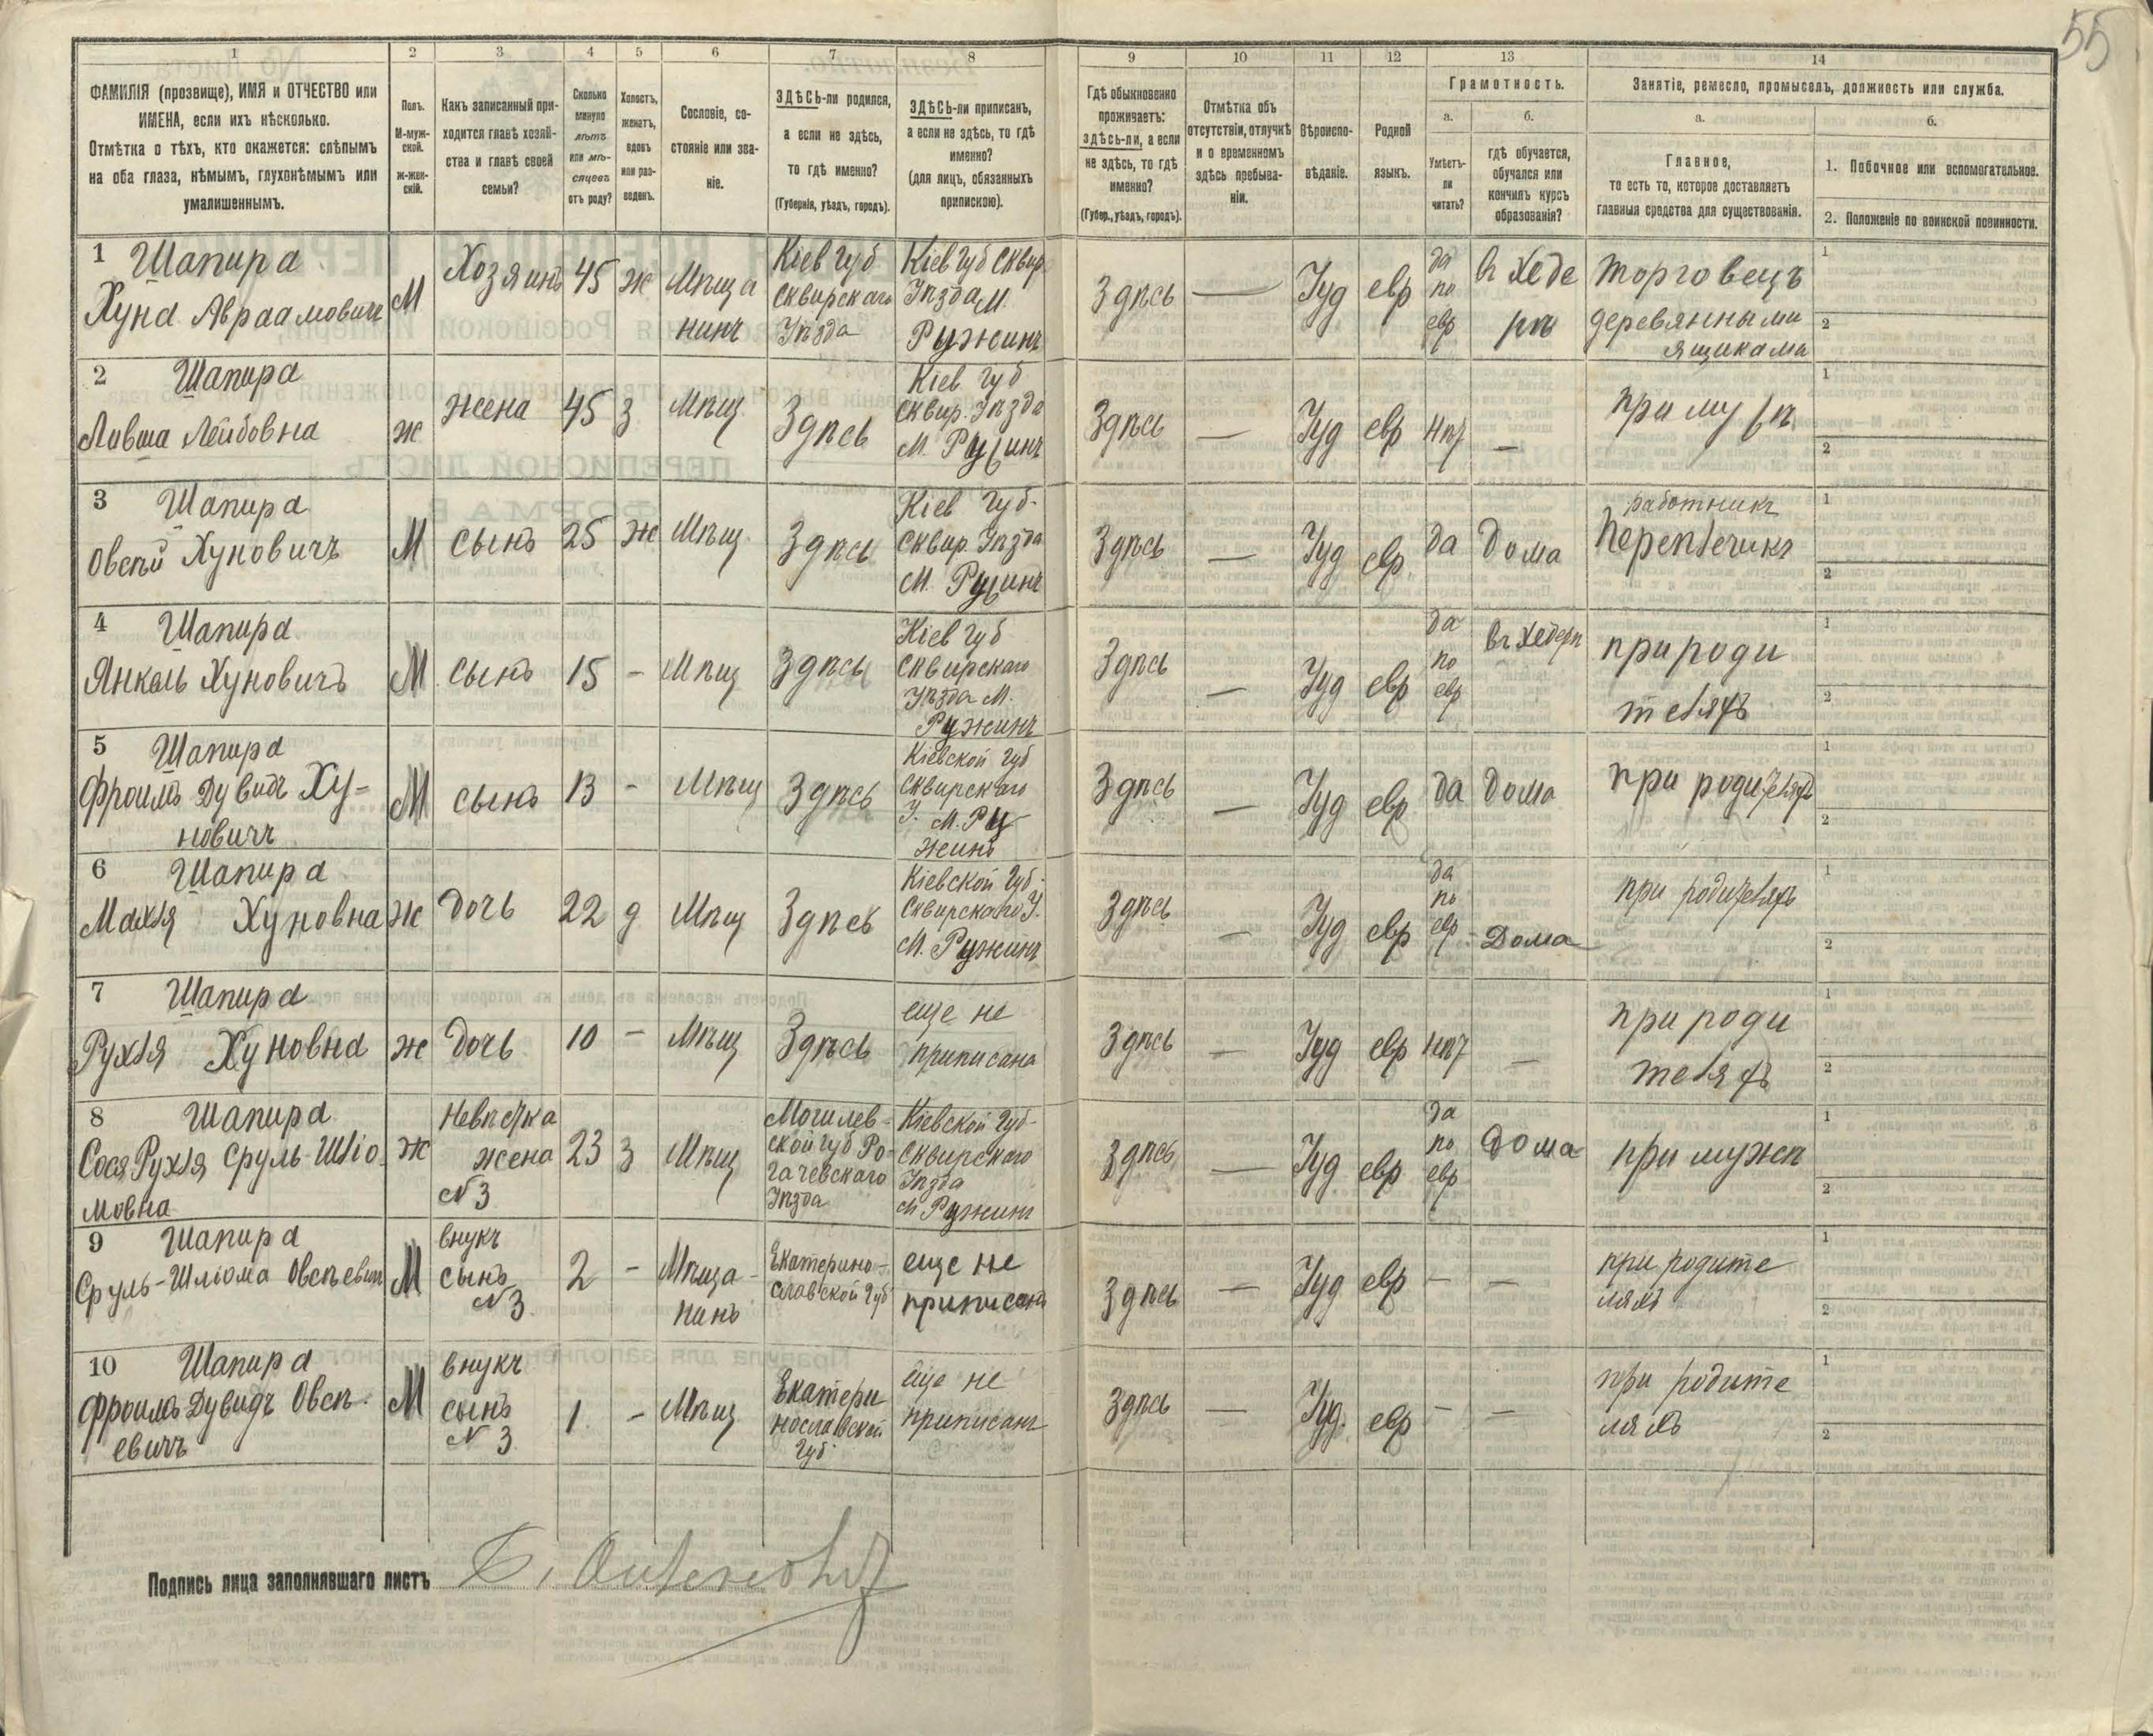 55
1 2 3 4 5 6 7 8 9 10 11 12 13 14
ФАМИЛІЯ (прозвище), ИМЯ и ОТЧЕСТВО или
ИМЕНА, если ихъ нѣсколько.
Отмѣтка о тѣхъ, кто окажется: слѣпымъ
на оба глаза, нѣмымъ, глухонѣмымъ или
умалишеннымъ.
Полъ.
М-муж-
ской.
ж-жен-
скій.
Какъ записанный при-
ходится главѣ хозяй-
ства и главѣ своей
семьи?
Сколько
минуло
лѣтъ
или мѣ-
сяцевъ
отъ роду?
Холостъ,
женатъ,
вдовъ
или раз-
веденъ.
Сословіе, со-
стояніе или зва-
ніе.
ЗДѢСЬ-ли родился,
а если не здѣсь,
то гдѣ именно?
(Губернія, уѣздъ, городъ).
ЗДѢСЬ-ли приписанъ,
а если не здѣсь, то гдѣ
именно?
(для лицъ, обязанныхъ
припискою).
Гдѣ обыкновенно
проживаетъ:
здѣсь-ли, а если
не здѣсь, то гдѣ
именно?
(Губер., уѣздъ, городъ).
Отмѣтка объ
отсутствіи, отлучкѣ
и о временномъ
здѣсь пребыва-
ніи.
Вѣроиспо-
вѣданіе.
Родной
языкъ.
Грамотность.
а.
Умѣетъ-
ли
читать?
б.
гдѣ обучается,
обучался или
кончилъ курсъ
образованія?
Занятіе, ремесло, промыселъ, должность или служба.
а.
Главное,
то есть то, которое доставляетъ
главныя средства для существованія.
б.
1. Побочное или вспомогательное.
2. Положеніе по воинской повинности.
1 Шапира
Хуна Авраамовичъ
М
Хозяинъ
45
ж
Мѣща
нинъ
Кіев губ
Сквирскаго
Уѣзда
Кіев губ Сквир
Уѣзда М.
Ружинъ
Здѣсь
—
Іуд
евр
да
по
евр
въ Хеде
рѣ
Торговецъ
деревянными
ящиками
1
2
2 Шапира
Лейбовна
ж
жена
45
з
Мѣщ
Здѣсь
Кіев губ
Сквир. Уѣзда
М. Ружинъ
Здѣсь
—
Іуд
евр
нѣт
—
при мужѣ
1
2
3 Шапира
Овсѣй Хуновичъ
М
сынъ
25
ж
Мѣщ
Здѣсь
Кіев губ.
Сквир. Уѣзда
М. Ружинъ
Здѣсь
—
Іуд
евр
да
Дома
работникъ
Переплетчикъ
1
2
4 Шапира
Янкель Хуновичъ
М
сынъ
15
-
Мѣщ
Здѣсь
Кіев губ
Сквирскаго
Уѣзда М.
Ружинъ
Здѣсь
—
Іуд
евр
да
по
евр
въ Хедерѣ
при роди
теляхъ
1
2
5 Шапира
Фроимъ Дувидъ Ху-
новичъ
М
сынъ
13
-
Мѣщ
Здѣсь
Кіевской губ
Сквирскаго
У. М. Ру-
жинъ
Здѣсь
—
Іуд
евр
да
дома
при родителяхъ
1
2
6 Шапира
Махля Хуновна
ж
дочь
22
д
Мѣщ
Здѣсь
Кіевской губ.
Сквирскаго У.
М. Ружинъ
Здѣсь
—
Іуд
евр
да
по
евр.
Дома
при родителяхъ
1
2
7 Шапира
Рухля Хуновна
ж
дочь
10
-
Мѣщ
Здѣсь
еще не
приписана
Здѣсь
—
Іуд
евр
нѣт
—
при роди
теляхъ
1
2
8 Шапира
Сося Рухля Сруль-Шліо
мовна
ж
невѣстка
жена
N 3
23
з
Мѣщ
Могилев-
ской губ Ро-
гачевскаго
Уѣзда
Кіевской губ
Сквирскаго
Уѣзда
М Ружинъ
Здѣсь
—
Іуд
евр
да
по
евр
Дома
при мужѣ
1
2
9 Шапира
Сруль-Шліома Овсѣевич
М
внукъ
сынъ
N 3
2
-
Мѣща-
нинъ
Екатерино-
славской губ
еще не
приписанъ
Здѣсь
—
Іуд
евр
—
—
при родите
ляхъ
1
2
10 Шапира
Фроимъ Дувидъ Овсѣ-
евичъ
М
внукъ
сынъ
N 3
1
-
Мѣщ
Екатери
нославской
губ
еще не
приписанъ
Здѣсь
—
Іуд.
евр
—
—
при родите
ляхъ
1
2
Подпись лица заполнявшаго листъ